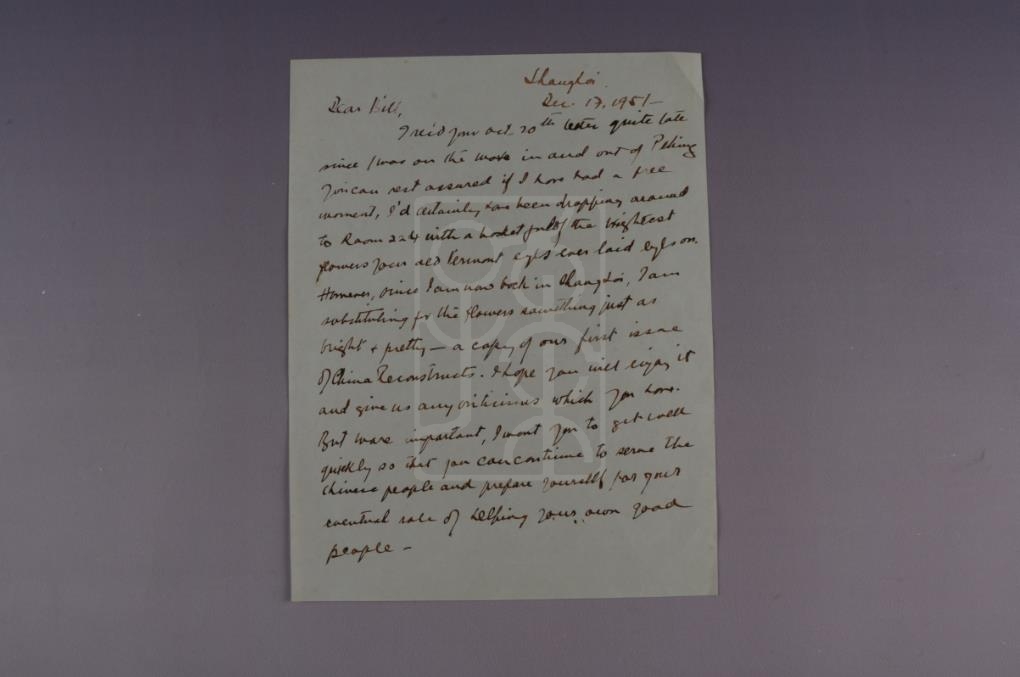 Shanghai.
Dec. 17, 1951-
Dear Bill,
I rec'd your oct. 20th letter quite late
since I was on the move in and out of Peking
You can rest assured if I have had a free
moment, I'd certainly have been dropping around
to Room 224 with a basket full of the brightest
flowers your old Vermont eyes ever laid eyes on.
However, since I am now back in Shanghai, I am
substituting for the flowers something just as
bright + pretty — a copy of our first issue
of China Reconstructs. I hope you will enjoy it
and give us any criticisms which you have.
But more important, I want you to get well
quickly so that you can continue to serve the
Chinese people and prepare yourself for your
eventual role of helping your own good
people —